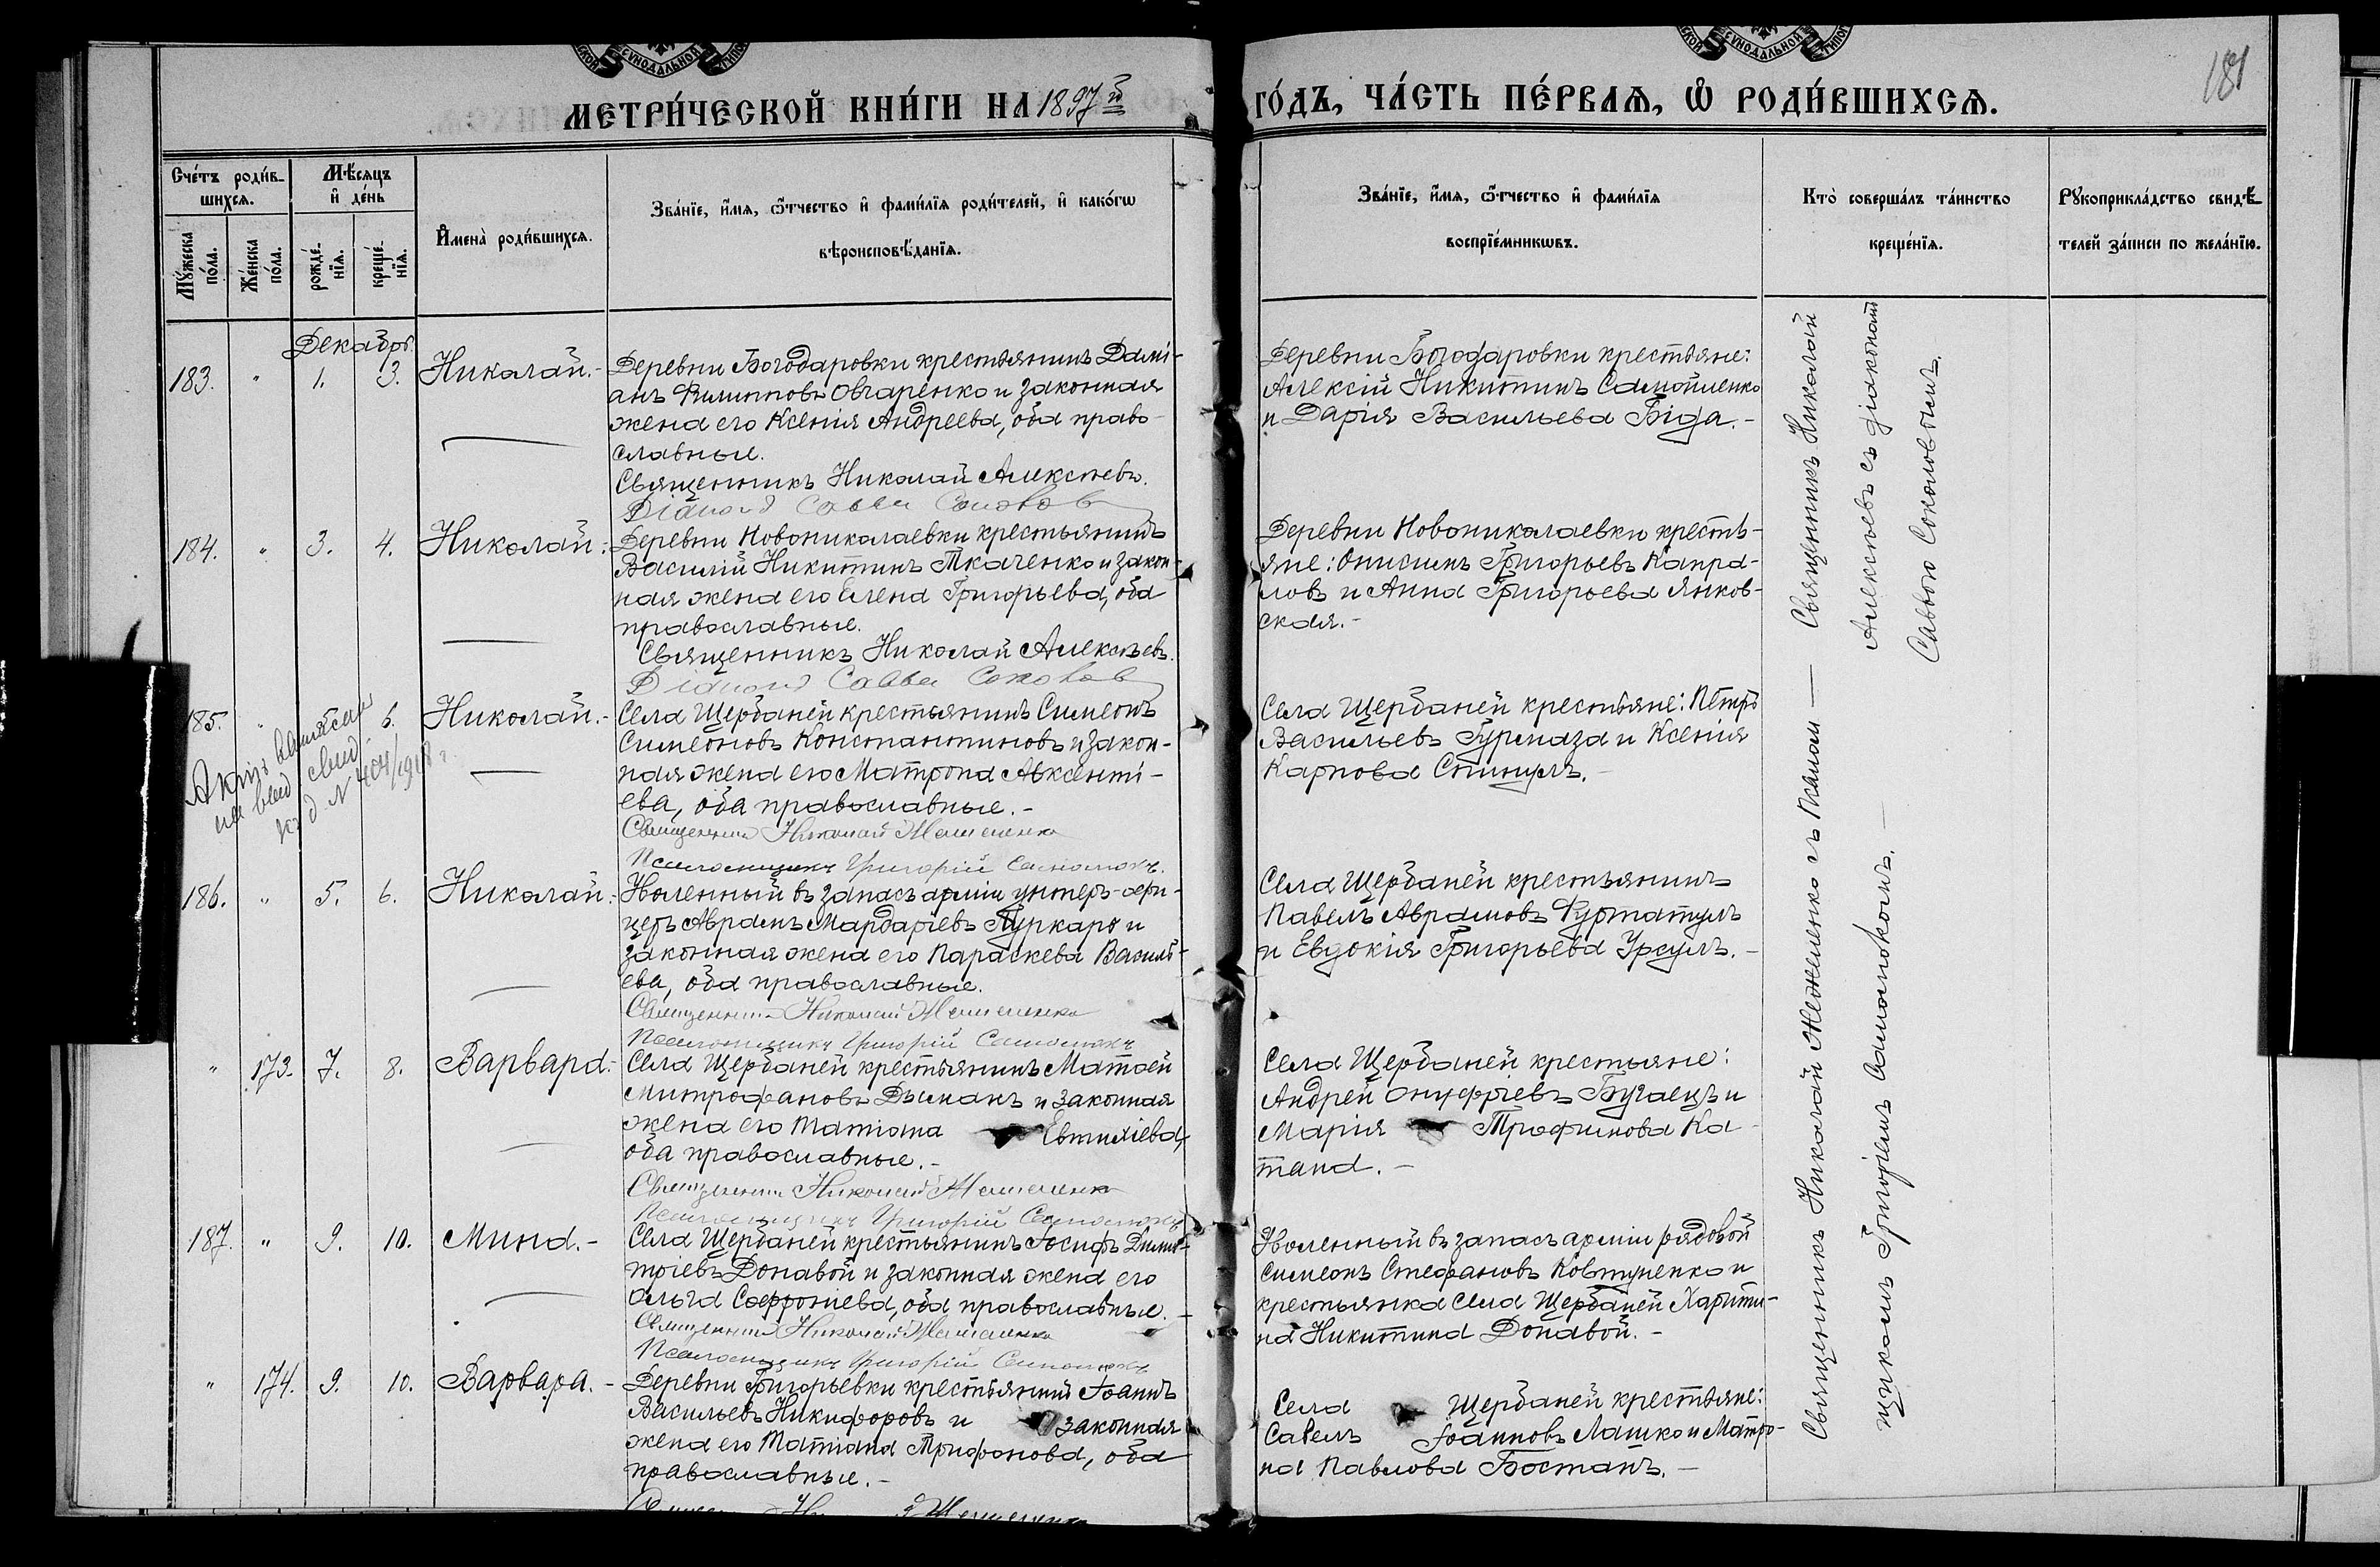 МЕТРИ́ЧЕСКОЙ КНИ́ГИ НА 1897й ГО́ДЪ, ЧА́СТЬ ПЕ́РВАѦ, Ѽ РОДИ́ВШИХСѦ.
181
Сче́тъ роди́вшихсѧ.
Мѣ́сяцъ и҆ де́нь
Мꙋ́жеска по́ла.
Же́нска по́ла.
рожде́нїѧ.
креще́нїѧ.
И҆мена̀ роди́вшихсѧ.
Зва́нїе, и҆́мѧ, ѻ҆́тчество и҆ фами́лїѧ роди́телей, и҆ како́гѡ
вѣроисповѣ́данїѧ.
Зва́нїе, и҆́мѧ, ѻ҆́тчество и҆ фами́лїѧ
воспрїе́мникѡвъ.
Кто̀ соверша́лъ та́инство
креще́нїѧ.
Рꙋкоприкла́дство свидѣ́телей за́писи по жела́нїю.
Декабрь.
183. " 1. 3. Николай.-
Деревни Богодаровки крестьянинъ Дамі-
анъ Филипповъ Овчаренко и законная
жена его Ксенія Андреева, оба право-
славные.
Священникъ Николай Алексѣевъ.
Діаконъ Савва Соколов
Деревни Богодаровки крестьяне:
Алексій Никитинъ Самойленко
и Дарія Васильева Біда.-
184. " 3. 4. Николай.-
Деревни Новониколаевки крестьянинъ
Василій Никитинъ Ткаченко и закон-
ная жена его Елена Григорьева, оба
православные.
Священникъ Николай Алексѣевъ.
Діаконъ Савва Соколов
Деревни Новониколаевки кресть-
яне: Онисимъ Григорьевъ Капра-
ловъ и Анна Григорьева Янков-
ская.-
185. " 6. Николай.-
свид.
№ 404/1918 г
Села Щербаней крестьянинъ Симеонъ
Симеоновъ Константиновъ и закон-
ная жена его Матрона Авксенті-
ева, оба православные.-
Священникъ Николай Меженко
Псаломщикъ Григорій Самойловъ
Села Щербаней крестьяне: Петръ
Васильевъ Гурмаза и Ксенія
Карпова Спинулъ.-
186. " 5. 6. Николай.-
Уволенный въ запасъ арміи унтеръ-офи-
церъ Аврамъ Мардаріевъ Пуркаръ и
законная жена его Параскева Василь-
ева, оба православные.
Священникъ Николай
Псаломщикъ Григорій
Села Щербаней крестьянинъ
Павелъ Аврамовъ Фуртатулъ
и Евдокія Григорьева Урсулъ.-
" 173. 7. 8. Варвара.-
Села Щербаней крестьянинъ Матѳей
Митрофановъ Дыманъ и законная
жена его Татіана Евтихіева,
оба православные.-
Священникъ Николай
Псаломщикъ Григорій
Села Щербаней крестьяне:
Андрей Онуфріевъ Бугаецъ и
Марія Трофимова Ка-
тана.-
187. " 9. 10. Мина.-
Села Щербаней крестьянинъ Іосифъ Дими-
тріевъ Донавой и законная жена его
Ольга Софроніева, оба православные.-
Священникъ Николай
Псаломщикъ Григорій
Уволенный въ запасъ арміи рядовой
Симеонъ Стефановъ Ковтуненко и
крестьянка села Щербаней Харити-
на Никитина Донавой.-
" 174. 9. 10. Варвара.-
Деревни Григорьевки крестьянинъ Іоаннъ
Васильевъ Никифоровъ и законная
жена его Татіана Трифонова, оба
православные.-
Села Щербаней крестьяне:
Савелъ Іоанновъ Лашко и Матро-
на Павлова Бостанъ.-
Священникъ Николай
Алексѣевъ съ діакономъ
Саввою Соколовымъ.
Священникъ Николай съ псалом-
щикомъ Григоріемъ